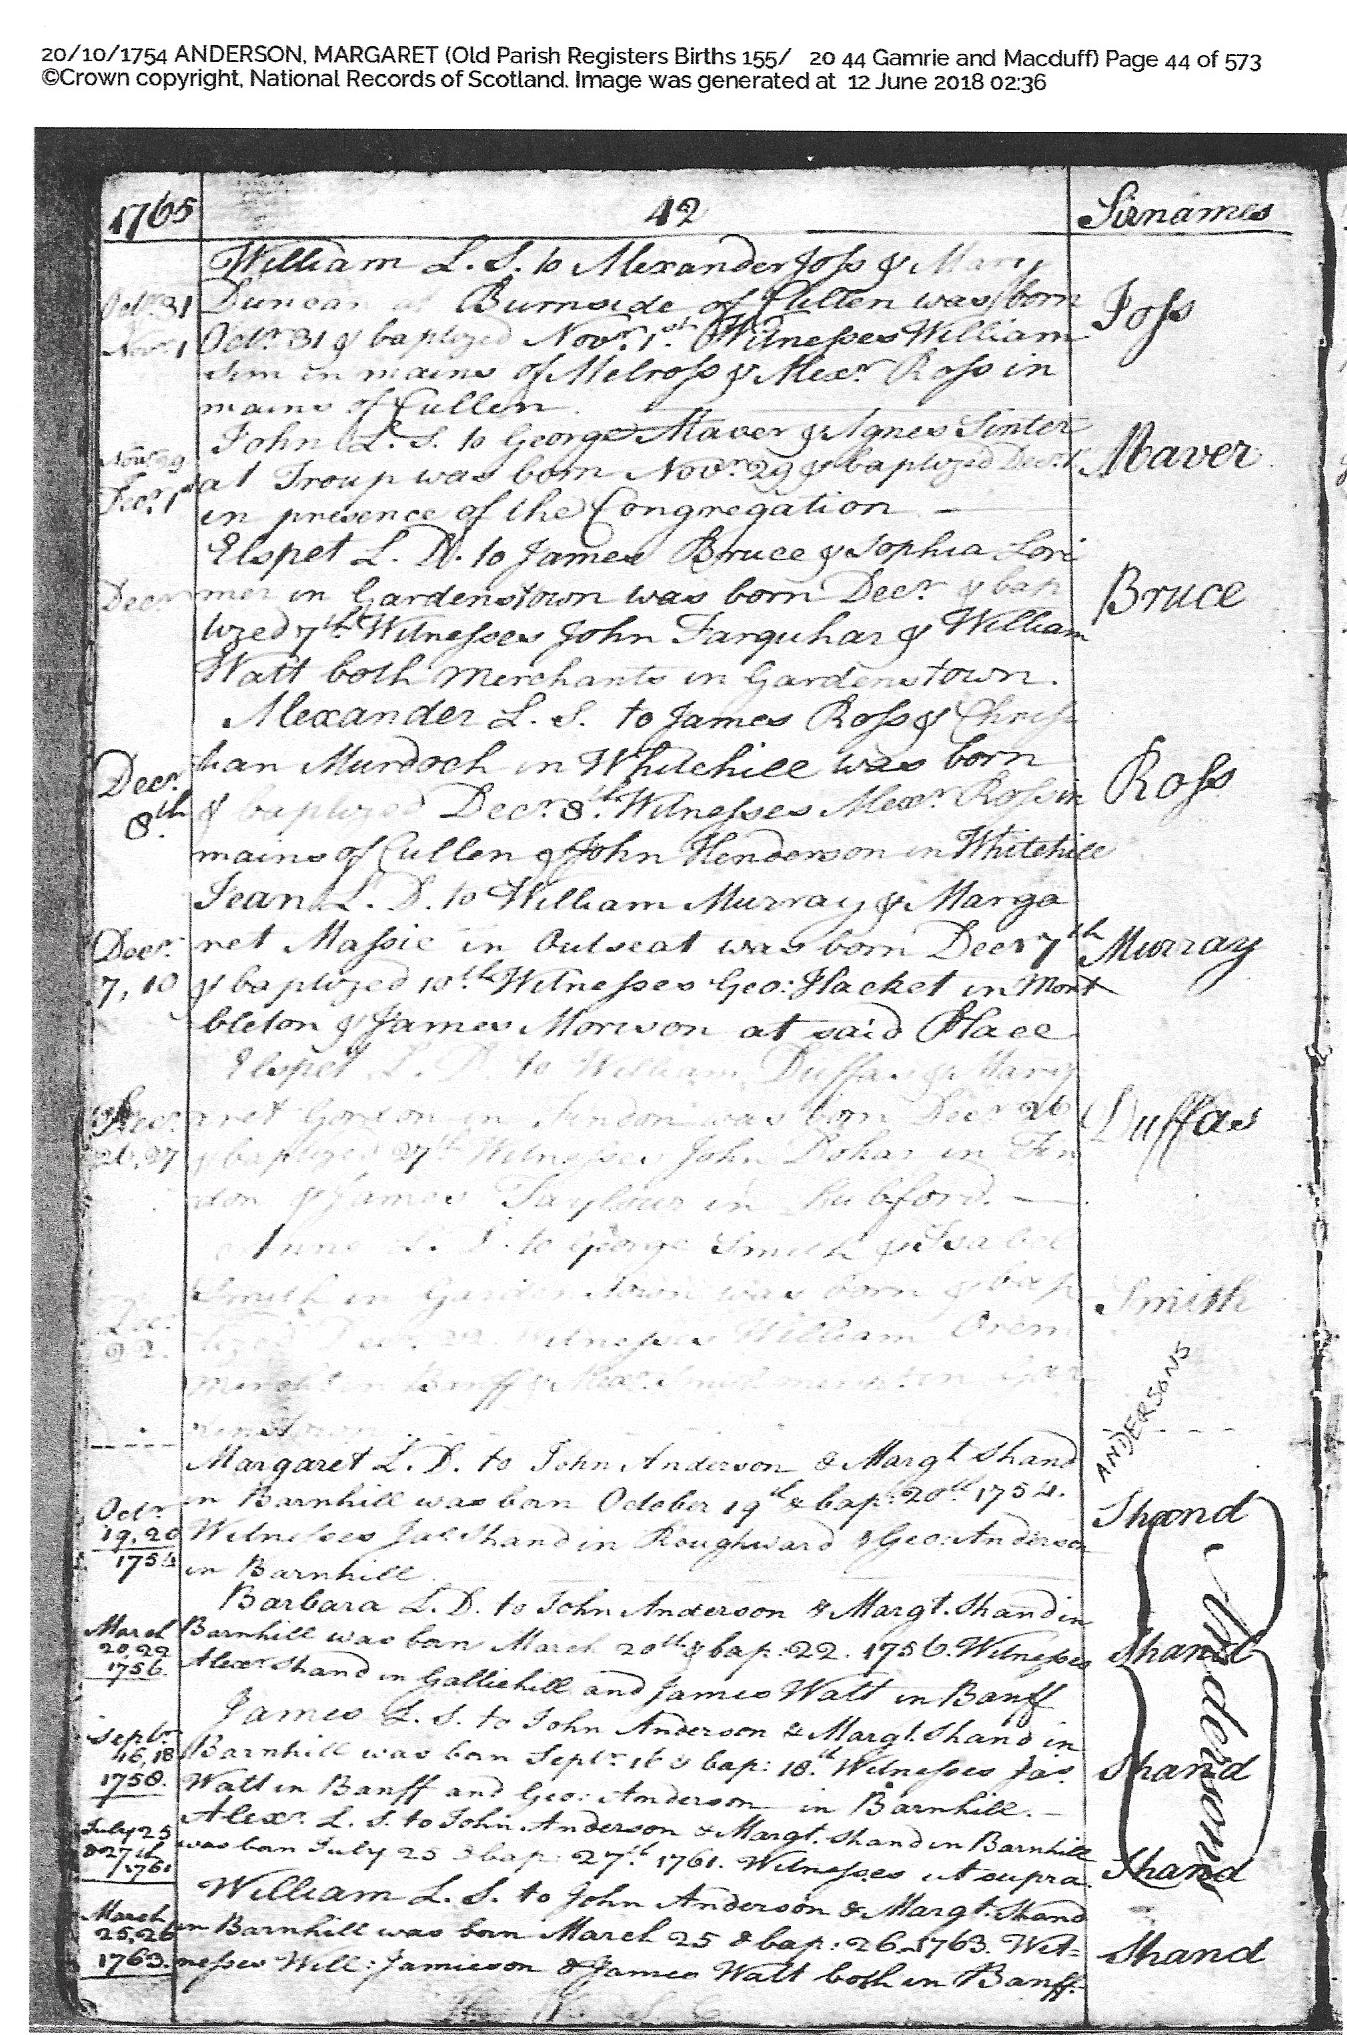 20/10/1754 ANDERSON, MARGARET (Old Parish Registers Births 155/ 20 44 Gamrie and Macduff) Page 44 of 573
©Crown copyright, National Records of Scotland. Image was generated at 12 June 2018 02:36
1765 42 Sirnames
William L. S. to Alexander Joss & Mary
Octr 31 Duncan at Burnside of Cullen was born
Joss
Novr 1 Octr 31 & baptized Novr 1st Witnesses William
Sim in mains of Melross & Alexr Ross in
mains of Cullen.
John L. S. to George Maver & Agnes Sinter
Novr 29 at Troup was born Novr 29 & baptized Decr 1 Maver
Decr 1st in presence of the Congregation —
Elspet L. D. to James Bruce & Sophia Lori
Decr mer in Gardenstown was born Decr & bap Bruce
tized 7th Witnesses John Farquhar & William
Watt both merchants in Gardenstown.
Alexander L. S. to James Ross & Chris
Decr tian Murdoch in Whitehill was born Ross
8th & baptized Decr 8th Witnesses Alexr Ross in
mains of Cullen & John Henderson in Whitehill
Jean L. D. to William Murray & Marga
Decr ret Massie in Outseat was born Decr 7th Murray
7, 10 & baptized 10th Witnesses Geo: Hacket in Mont
bleton & James Morison at said Place
Elspet L. D. to William Duffas & Mar
Decr ret Gordon in was born Decr 26 Duffas
26, 27 & baptized 27th Witnesses John in Fin
don & James Taylour in
Anne L. D. to George Smith & Isabel
Smith in Garden town was born & bap Smith
Decr 22 tized Decr 22 Witnesses William
mercht in Banff & Alexr Smith mercht in Gar
denstown
ANDERSONS
Margaret L. D. to John Anderson & Margt Shand
Octr in Barnhill was born October 19th & bap: 20th 1754. Shand
19, 20 Witnesses Jas Shand in Roughward & Geo: Anderson
1754 in Barnhill.
Anderson
Barbara L. D. to John Anderson & Margt. Shand in
March Barnhill was born March 20th & bap: 22. 1756. Witnesses Shand
20, 22 Alexr Shand in Galliehill and James Watt in Banff
1756.
James L. S. to John Anderson & Margt. Shand in
Septr 16, 18 Barnhill was born Septr 16 & bap: 18th Witnesses Jas. Shand
1758. Watt in Banff and Geo: Anderson in Barnhill. —
Alexr. L. S. to John Anderson & Margt. Shand in Barnhill
July 25 & 27th 1761 was born July 25 & bap: 27th 1761. Witnesses ut supra. Shand
William L. S. to John Anderson & Margt. Shand
March 25, 26 in Barnhill was born March 25 & bap: 26. 1763. Wit= Shand
1763. nesses Will: Jamieson & James Watt both in Banff.